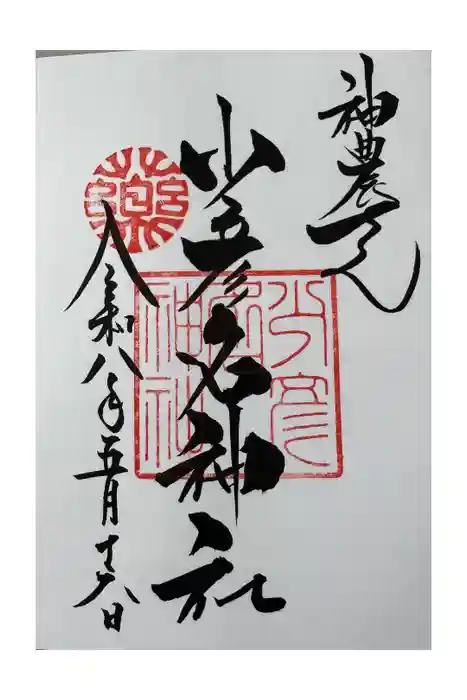 神農さん
少彦名神社
令和八年五月十六日
薬
少彦
名
神社